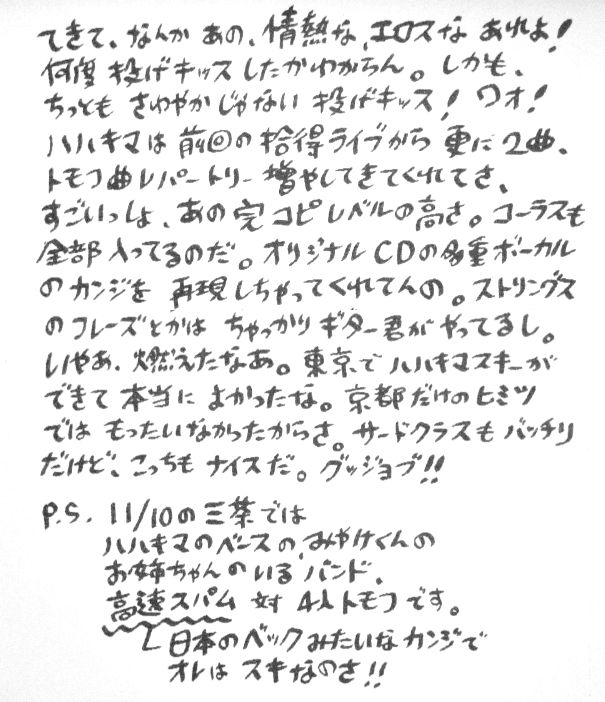 てきて、なんか あの、情熱な、エロスな あれよ!
何度 投げキッス したかわからん。しかも、
ちっとも さわやか じゃない 投げキッス! ワオ!
ハハキマは 前回の 拾得ライブから 更に2曲、
トモフ曲レパートリー 増やしてきてくれてさ、
すごいっしょ、あの完コピレベルの高さ。コーラスも
全部入ってるのだ。オリジナルCDの多重ボーカル
のカンジを 再現しちゃってくれてんの。ストリングス
のフレーズとかは ちゃっかり ギター君が やってるし。
いやあ、燃えたなあ。東京で ハハキマスキーが
できて 本当に よかったな。京都だけのヒミツ
では もったいなかったからさ。サードクラスも バッチリ
だけど、こっちも ナイスだ。グッジョブ!!
P.S. 11/10の三茶では
ハハキマのベースの、みやけくんの
お姉ちゃんのいる バンド、
高速スパム 対 4人トモフです。
日本のベックみたいな カンジで
オレは スキなのさ!!